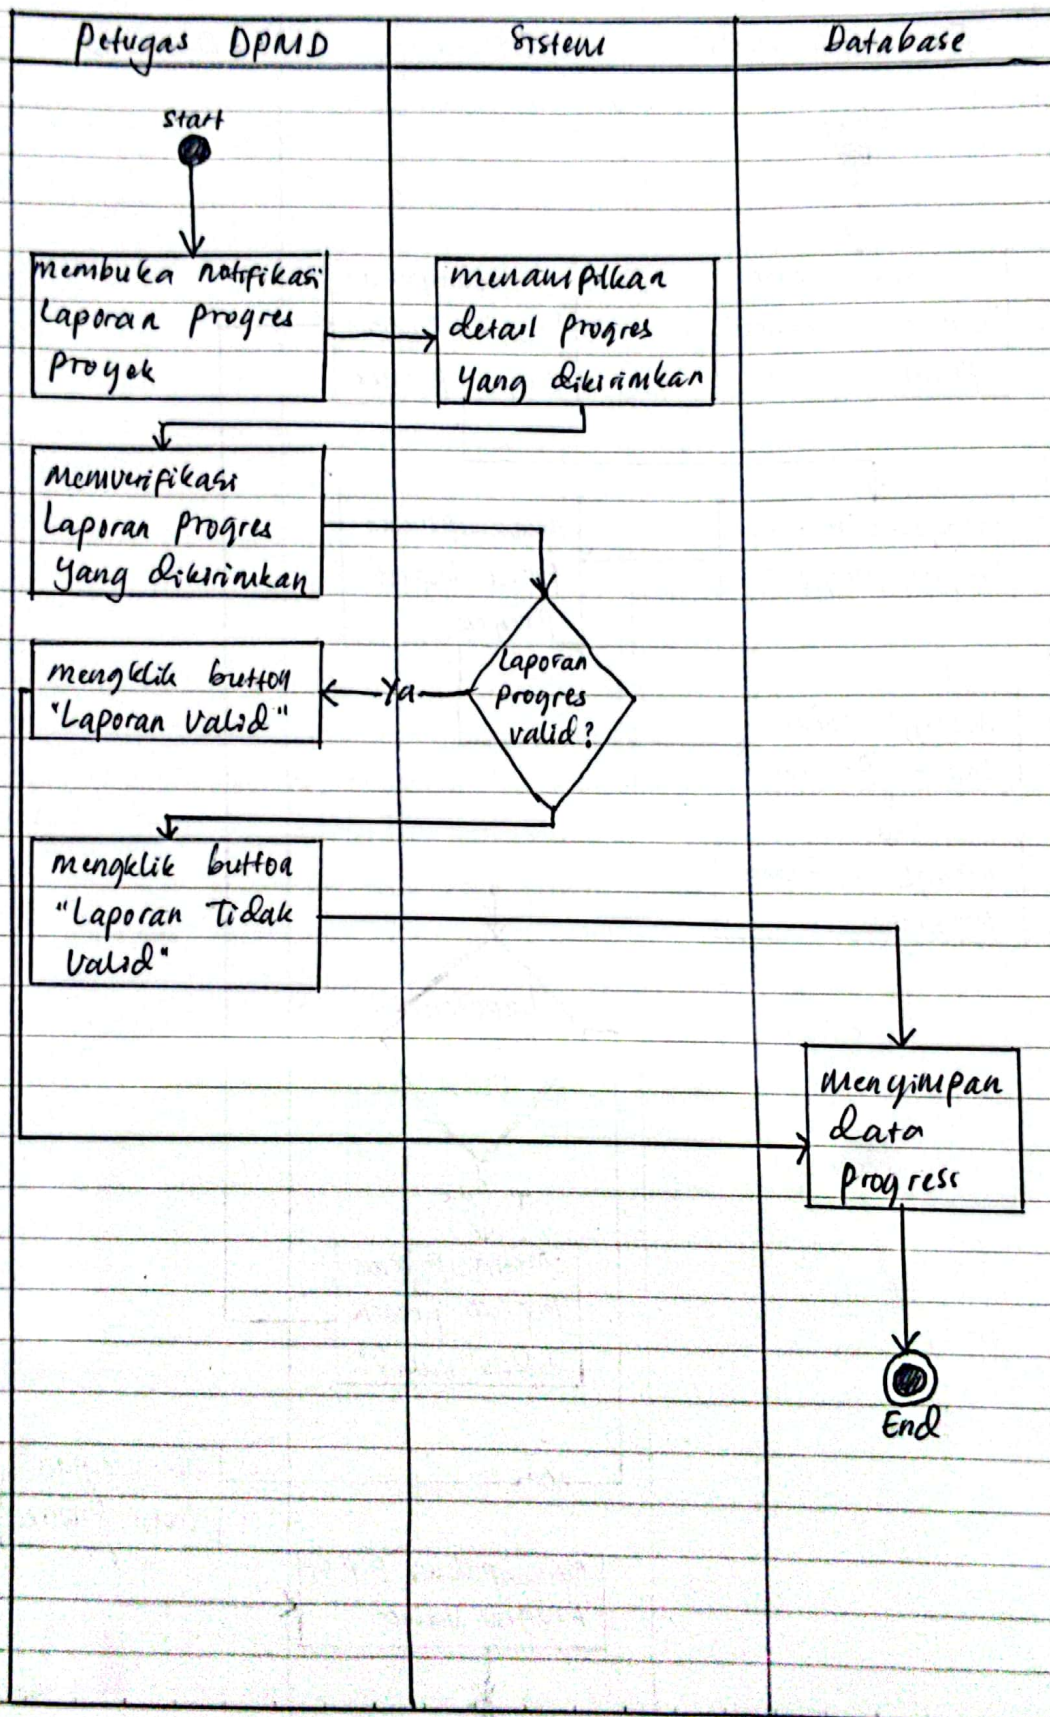 Petugas DPMD
Sistem
Database
Start
membuka notifikasi
Laporan progres
Proyek
menampilkan
detail progres
yang dikirimkan
Memverifikasi
Laporan progres
yang dikirimkan
Laporan
progres
valid?
Ya
mengklik button
"Laporan valid"
mengklik button
"Laporan Tidak
Valid"
menyimpan
data
progress
End